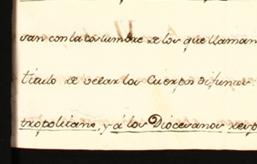 van con la costumbre de los que llaman
título de velar los Cuerpos difuntos
tropolitano, y á los Diocesanos